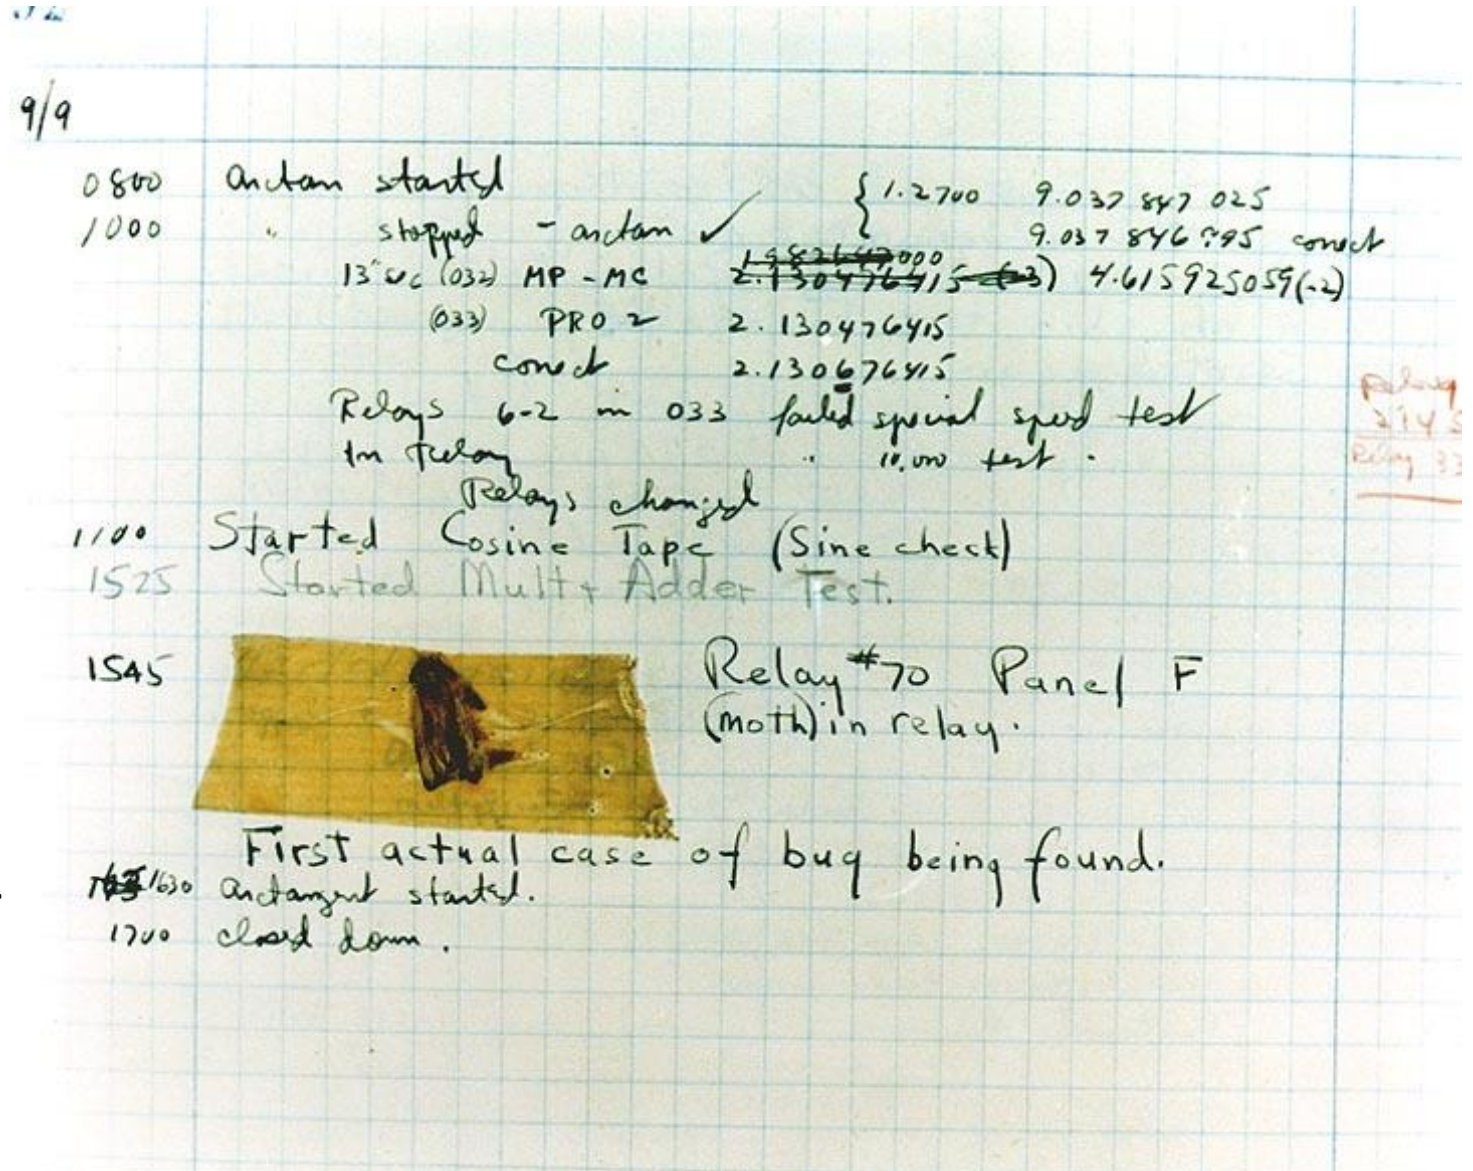 9/9
0800 Antan started
1000 " stopped - antan ✓ { 1.2700 9.037 847 025
9.037 846 995 conect
13"uc (032) MP - MC 2.130476415 (-3) 4.615925059(-2)
(033) PRO 2 2.130476415
conect 2.130676415
Relays 6-2 in 033 failed special speed test
In Relay " 10,000 test.
Relays changed
Relay
2145
Relay 33
1100 Started Cosine Tape (Sine check)
1525 Started Mult + Adder Test.
1545 Relay #70 Panel F
(moth) in relay.
First actual case of bug being found.
1630 Antangent started.
1700 closed down.